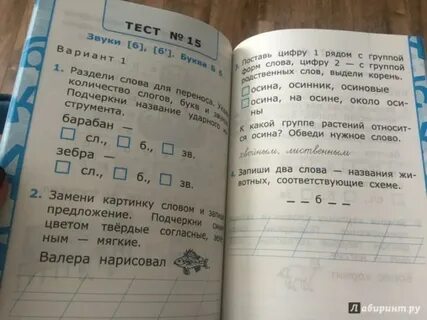 ТЕСТ № 15
Звуки [б], [б']. Буква Б б
Вариант 1
1. Раздели слова для переноса.
количество слогов, букв и
Подчеркни название ударного
струмента.
барабан —
сл., б., зв.
зебра —
сл., б., зв.
2. Замени картинку словом и
предложение. Подчеркни
цветом твёрдые согласные,
ным — мягкие.
Валера нарисовал
3. Поставь цифру 1 рядом с группой
форм слова, цифру 2 — с группой
родственных слов, выдели корень.
осина, осинник, осиновые
осина, на осине, около оси-
ны
К какой группе растений относит-
ся осина? Обведи нужное слово.
хвойным, лиственным
4. Запиши два слова — названия жи-
вотных, соответствующие схеме.
_ _ б _ _
Лабиринт.ру